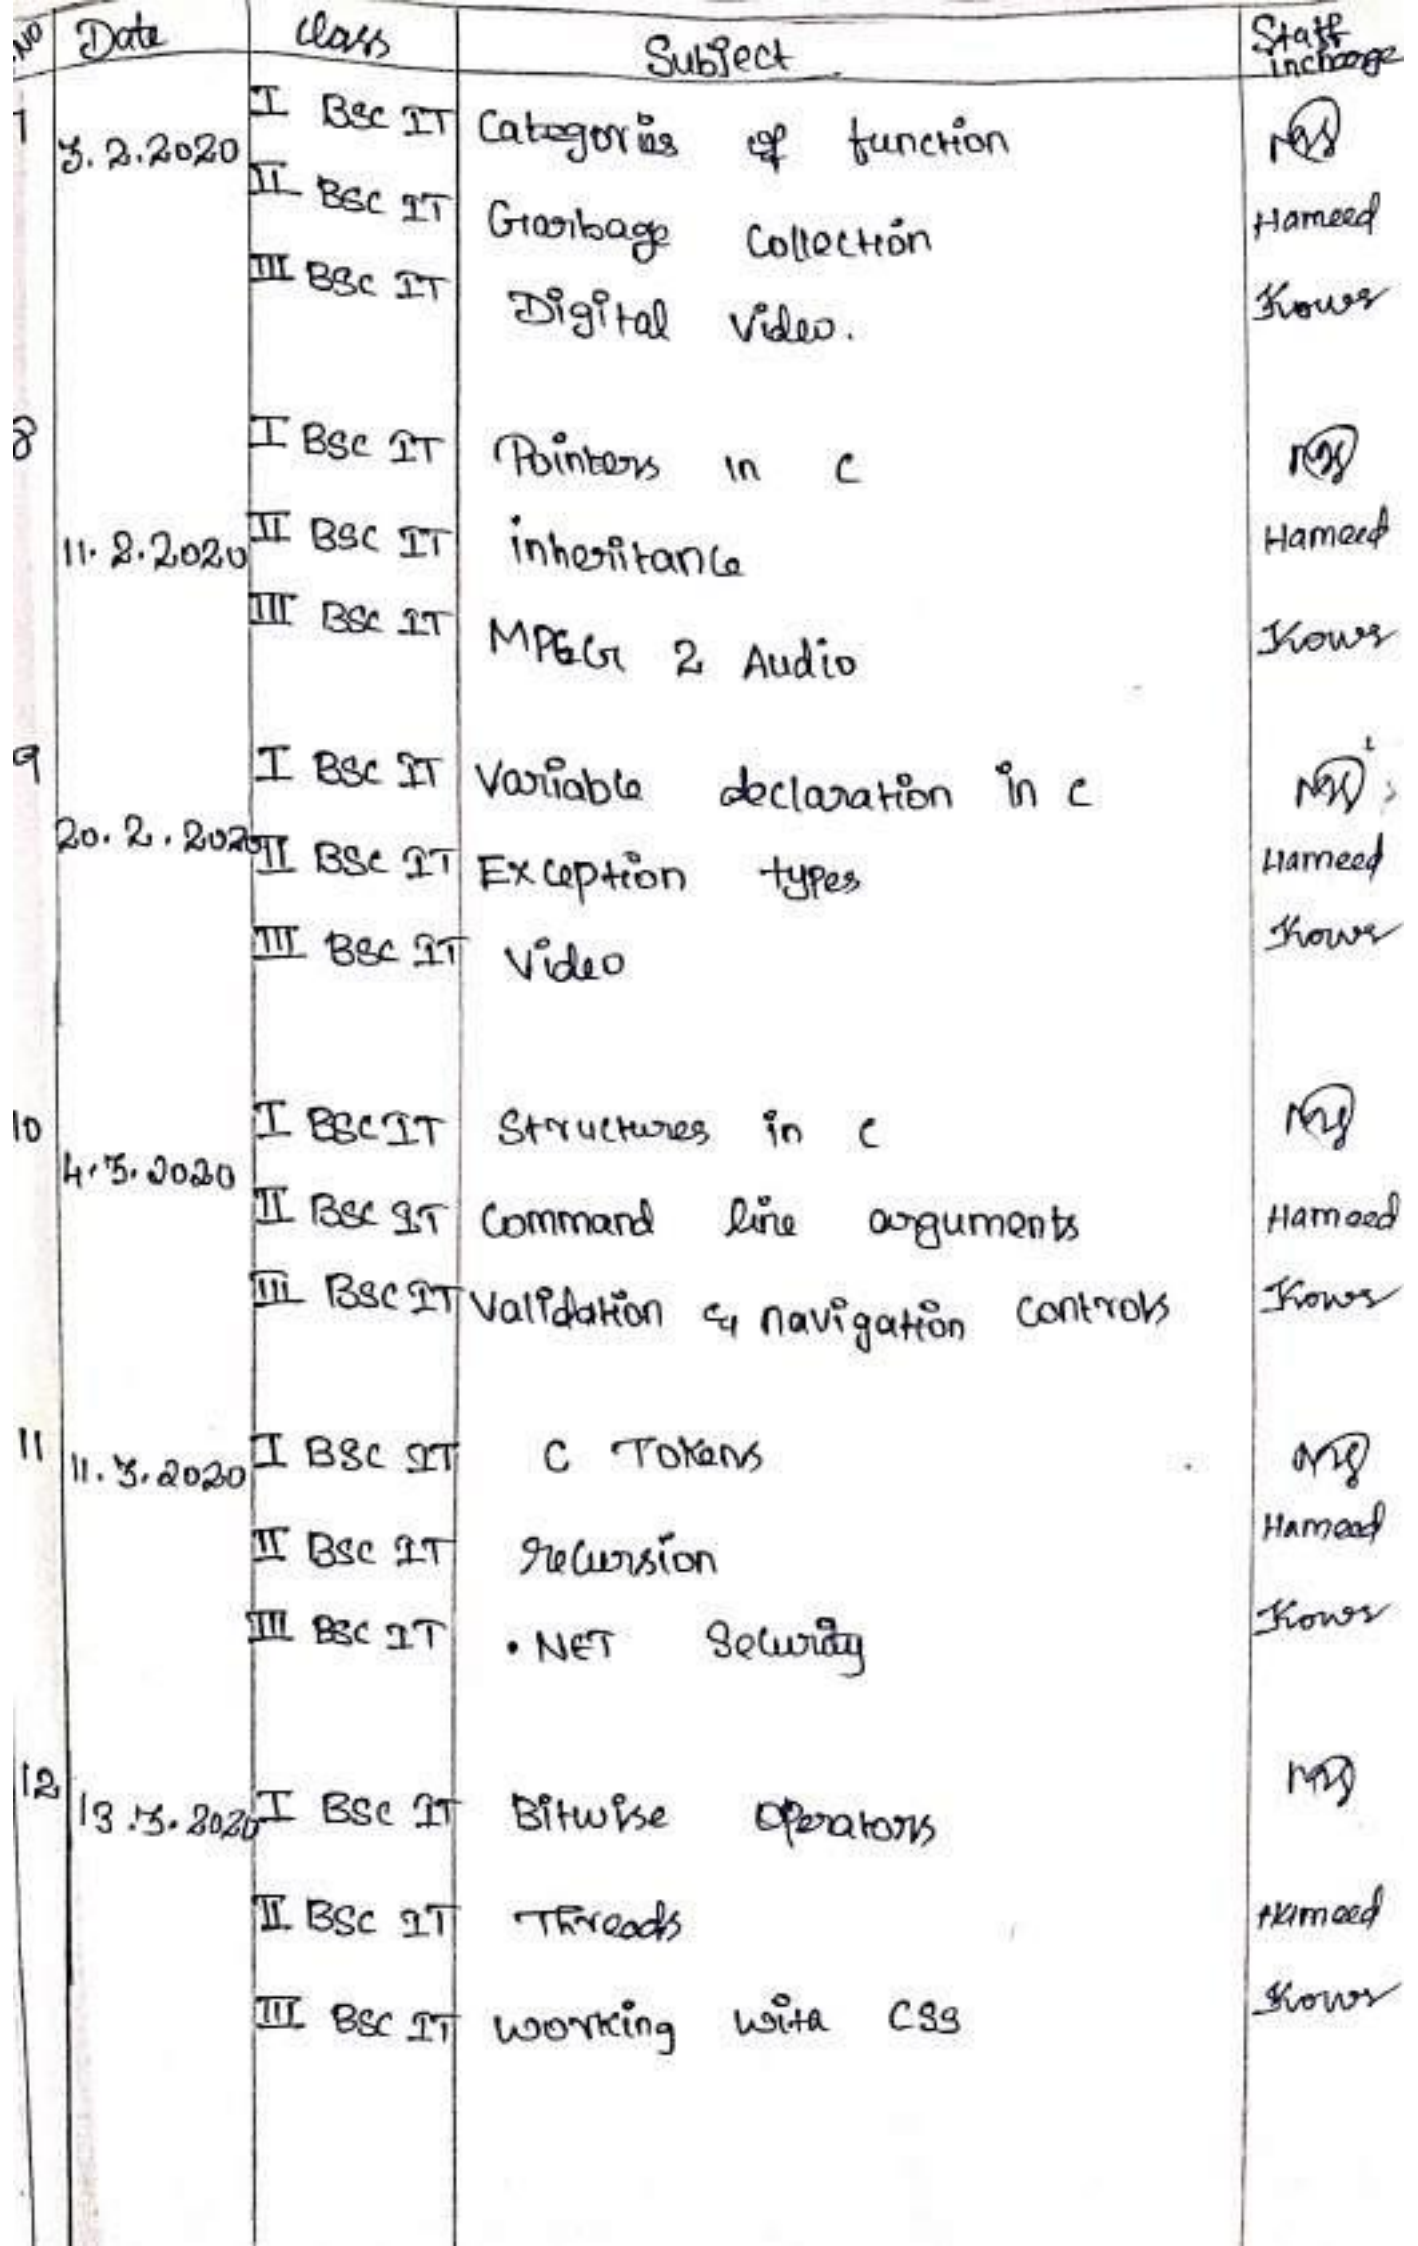 NO Date Class Subject Staff incharge
7 3.2.2020 I BSC IT Categories of function
II BSC IT Garbage Collection Hameed
III BSC IT Digital Video. Kows
8 I BSC IT Pointers in C
11.2.2020 II BSC IT inheritance Hameed
III BSC IT MPEG 2 Audio Kows
9 I BSC IT Variable declaration in C
20.2.2020 II BSC IT Exception types Hameed
III BSC IT Video Kows
10 4.3.2020 I BSC IT Structures in C
II BSC IT Command line arguments Hameed
III BSC IT Validation & navigation Controls Kows
11 11.3.2020 I BSC IT C Tokens
II BSC IT recursion Hameed
III BSC IT .NET Security Kows
12 13.3.2020 I BSC IT Bitwise Operators
II BSC IT Threads Hameed
III BSC IT working with CSS Kows